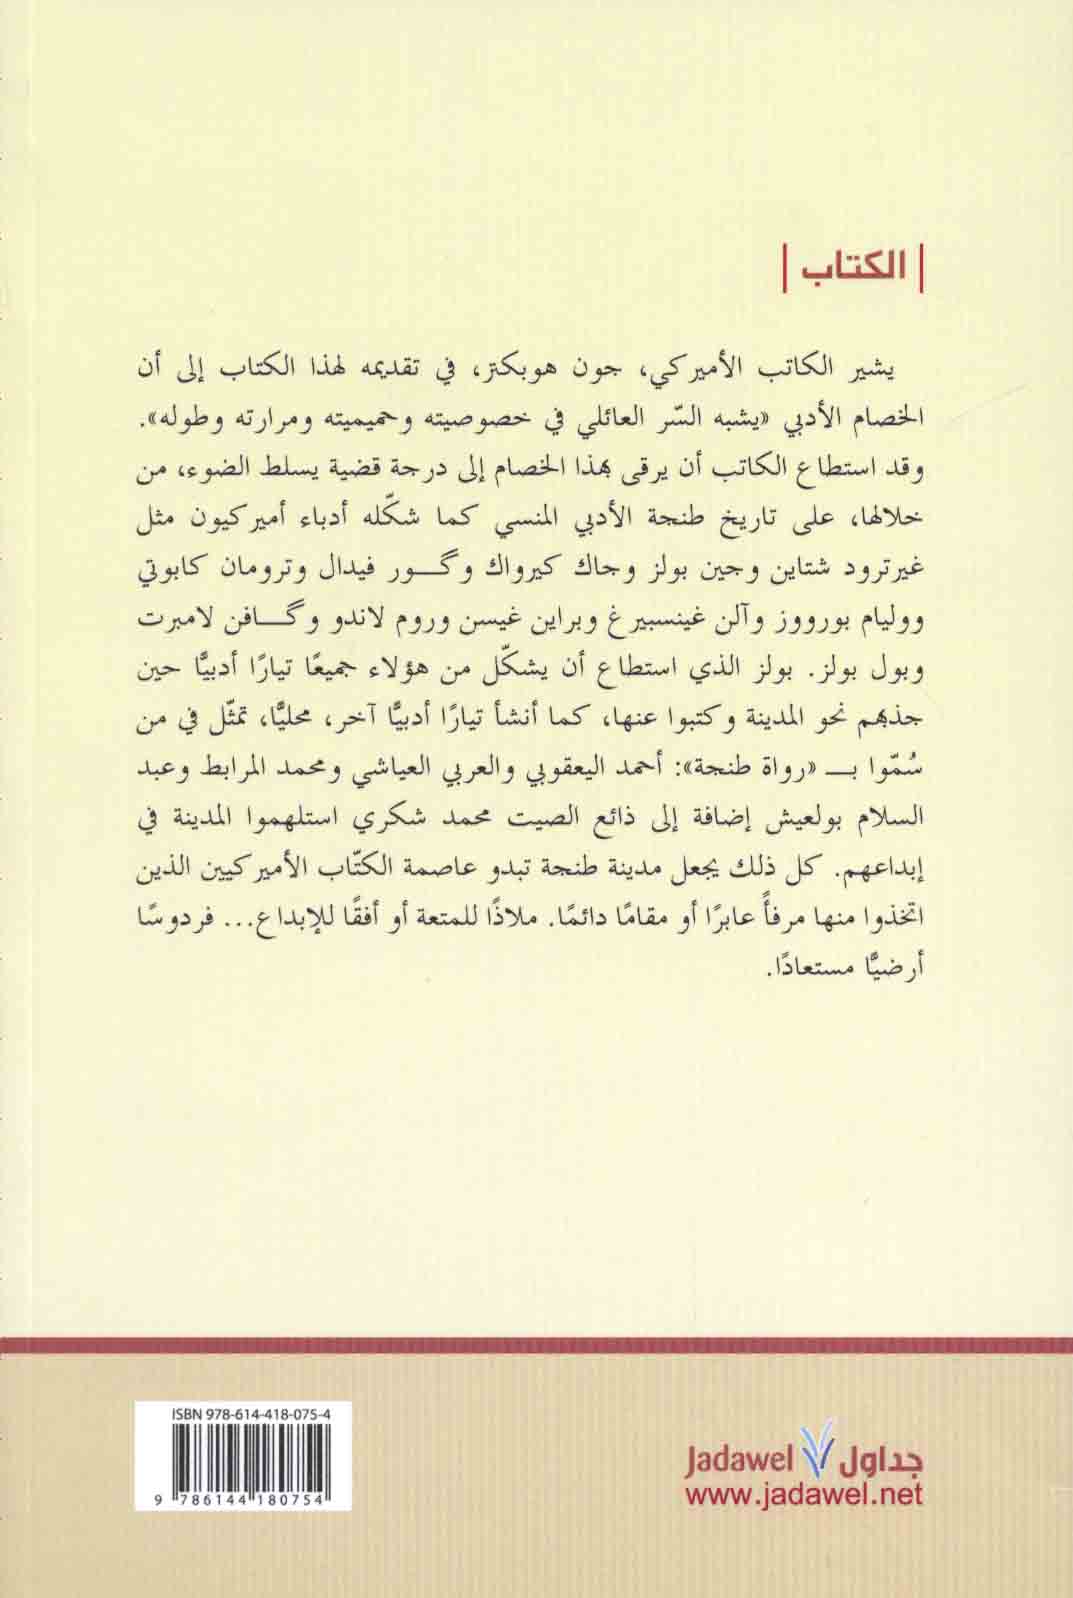 | الكتاب |
يشير الكاتب الأميركي، جون هوبكتز، في تقديمه لهذا الكتاب إلى أن
الخصام الأدبي «يشبه السّر العائلي في خصوصيته وحميميته ومرارته وطوله».
وقد استطاع الكاتب أن يرقى بهذا الخصام إلى درجة قضية يسلط الضوء، من
خلالها، على تاريخ طنجة الأدبي المنسي كما شكّله أدباء أميركيون مثل
غيرترود شتاين وجين بولز وجاك كيرواك وگـــور فيدال وترومان كابوتي
ووليام بورووز وآلن غينسبيرغ وبراين غيسن وروم لاندو وگـــافن لامبرت
وبول بولز. بولز الذي استطاع أن يشكّل من هؤلاء جميعًا تيارًا أدبيًّا حين
جذبهم نحو المدينة وكتبوا عنها، كما أنشأ تيارًا أدبيًّا آخر، محليًّا، تمثّل في من
سُمّوا بـــ «رواة طنجة»: أحمد اليعقوبي والعربي العياشي ومحمد المرابط وعبد
السلام بولعيش إضافة إلى ذائع الصيت محمد شكري استلهموا المدينة في
إبداعهم. كل ذلك يجعل مدينة طنجة تبدو عاصمة الكتّاب الأميركيين الذين
اتخذوا منها مرفأً عابرًا أو مقامًا دائمًا. ملاذًا للمتعة أو أفقًا للإبداع... فردوسًا
أرضيًّا مستعادًا.
ISBN 978-614-418-075-4
9 786144 180754
Jadawel جداول
www.jadawel.net